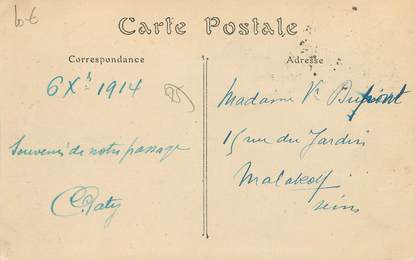 60€
Carte Postale
Correspondance
6 Xᵇ 1914
Souvenir de notre passage
Adresse
Madame Vᵉ Dupont
15 rue du Jardin
Malakoff
Seine